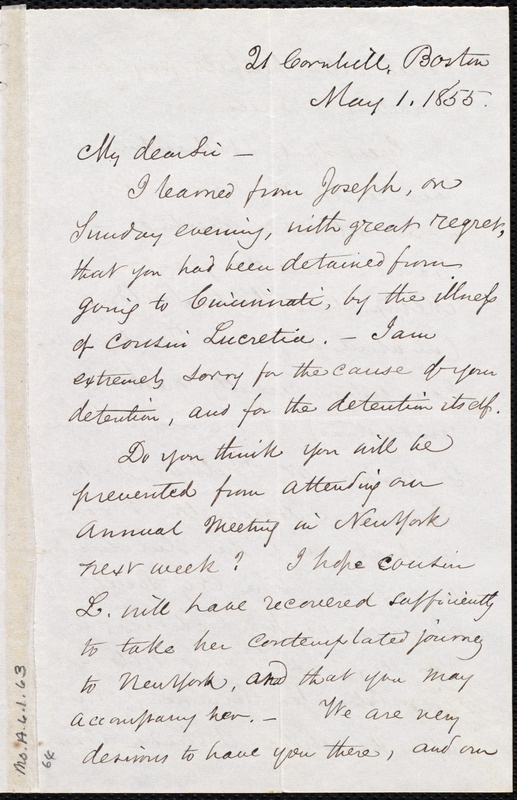 21 Cornhill, Boston
May 1. 1855.
My dear Sir —
I learned from Joseph, on
Sunday evening, with great regret,
that you had been detained from
going to Cincinnati, by the illness
of cousin Lucretia. — I am
extremely sorry for the cause of your
detention, and for the detention itself.
Do you think you will be
prevented from attending our
Annual Meeting in New York
next week? I hope cousin
L. will have recovered sufficiently
to take her contemplated journey
to New York, and that you may
accompany her. — We are very
desirous to have you there, and our
Ms. A. 6.1. 63
64